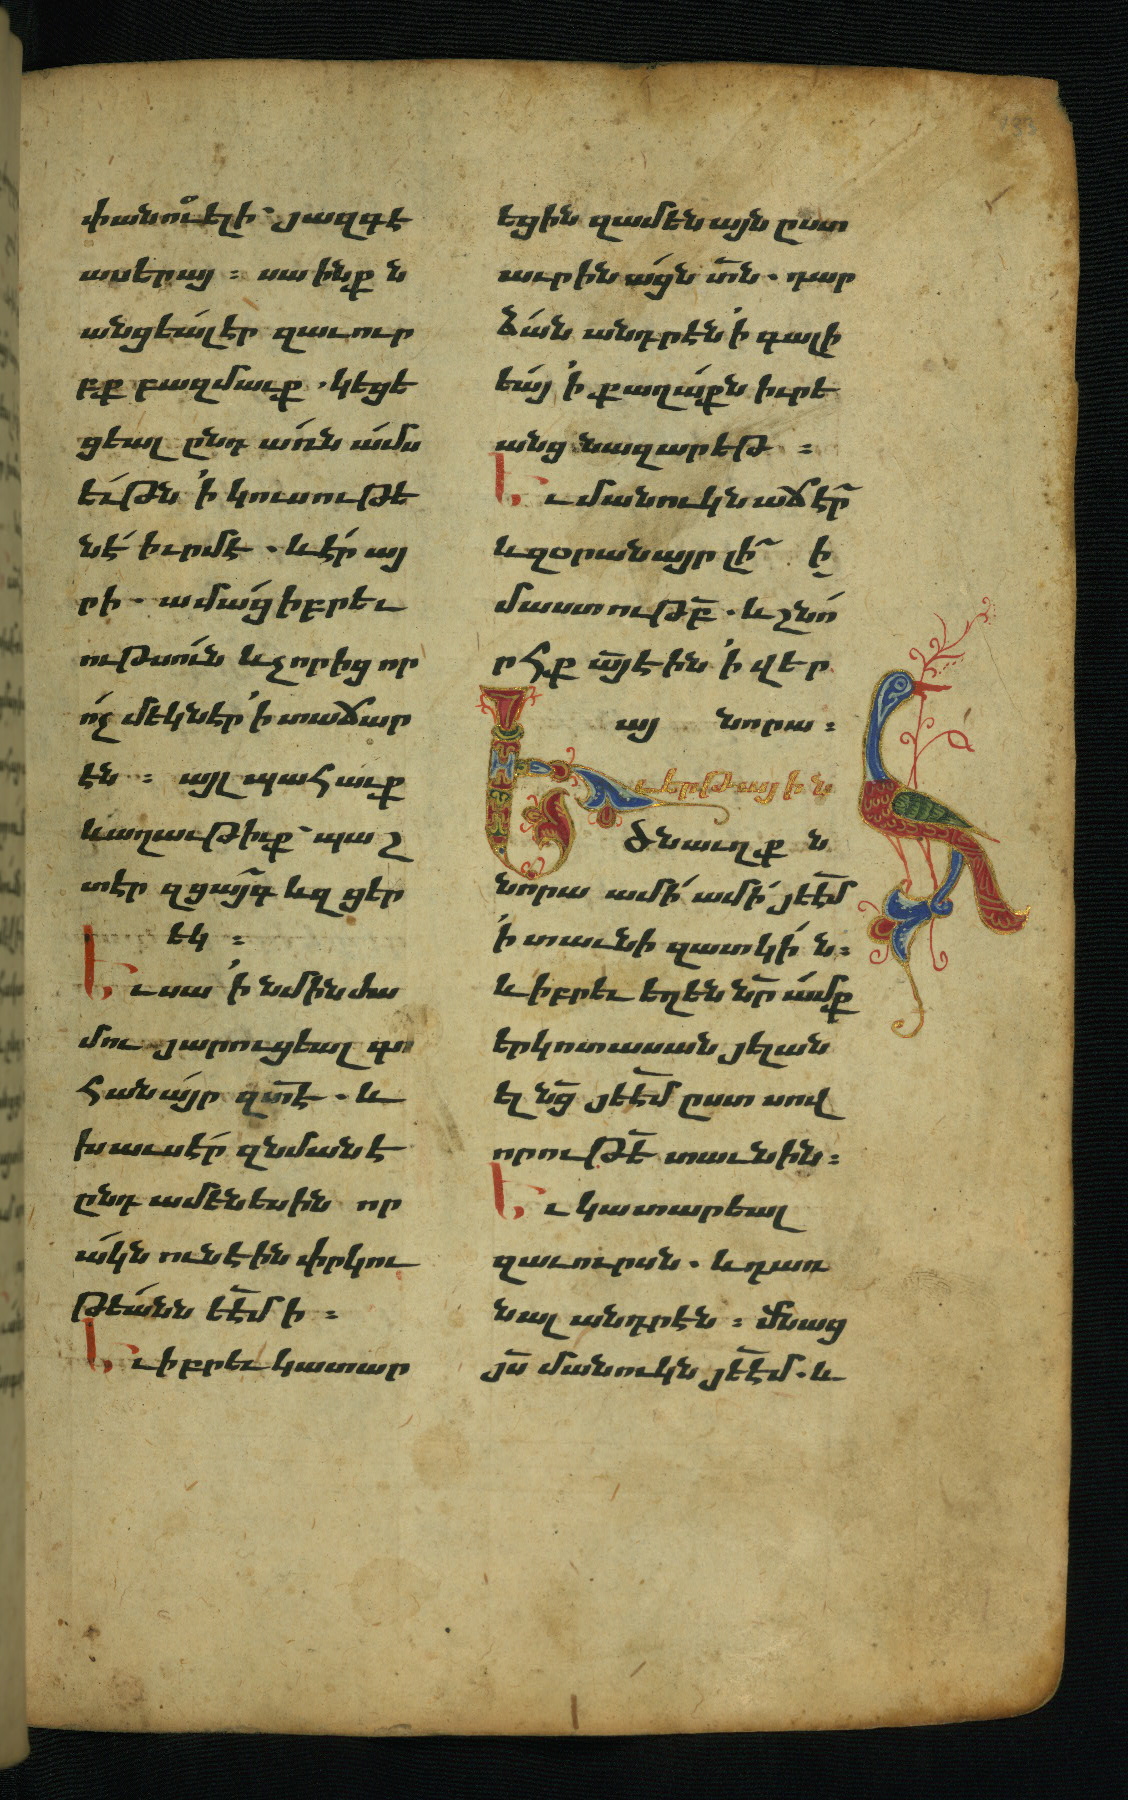 փանուէլի՝ յազգէ
ասերայ ։ սա ինքն
անցեալ էր զաւուր
բք բազմաւք . կեցե
ցեալ ընդ առն ամս
եւթն ՛ի կուսութե
նէ իւրմէ . և էր այ
րի . ամաց իբրեւ
ութսուն և չորից որ
ոչ մեկնէր ՛ի տաճար
էն ։ այլ պահաւք
և աղաւթիւք՝ պաշ
տէր զցայգ և զցեր
եկ ։
Եւ սա ՛ի նմին ժա
մու յարուցեալ գո
հանայր զտէ . և
խաւսէր զնմանէ
ընդ ամենեսին որ
ակն ունէին փրկու
թեանն եէմի ։
Եւ իբրեւ կատար
եցին զամենայն ըստ
աւրինացն տն . դար
ձան անդրէն ՛ի գալի
եայ ՛ի քաղաքն իւրե
անց նազարեթ ։
Եւ մանուկն աճէր
և զօրանայր լի ի
մաստութբ . և շնո
րհք այ էին ՛ի վեր
այ նորա ։
Եւ երթային
ծնաւղքն
նորա ամի ամի յեէմ
՛ի տաւնի զատկին ։
և իբրեւ եղեն նր ամք
երկոտասան յելան
ել նց յեէմ ըստ սով
որութե տաւնին ։
Եւ կատարեալ
զաւուրսն . և դառ
նալ անդրէն ։ մնաց
յս մանուկն յեէմ . և